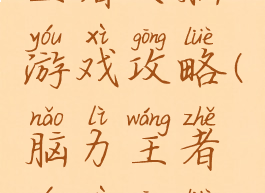 yóu xì gōng lüè
游戏攻略(
nǎo lì wáng zhě
脑力王者